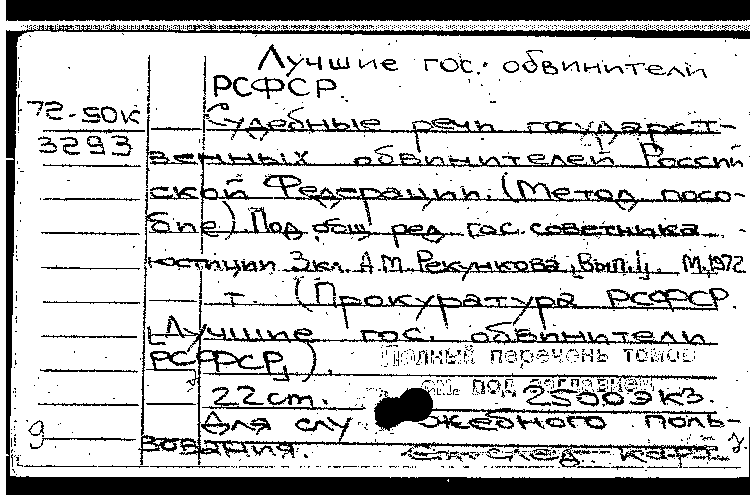 Лучшие гос. обвинители
РСФСР.
72-50к
3293
Судебные речи государст-
венных обвинителей Россий
ской Федерации. (Метод. посо-
бие) Под общ. ред. гос. советника
юстиции 3 кл. А.М. Рекункова, Вып. 1, М, 1972
т. (Прокуратура РСФСР.
[Лучшие гос. обвинители
РСФСР]).
Полный перечень томов
см. под заглавием
22 ст. 2500 экз.
Для служебного поль-
9 зования. См. след. карт.